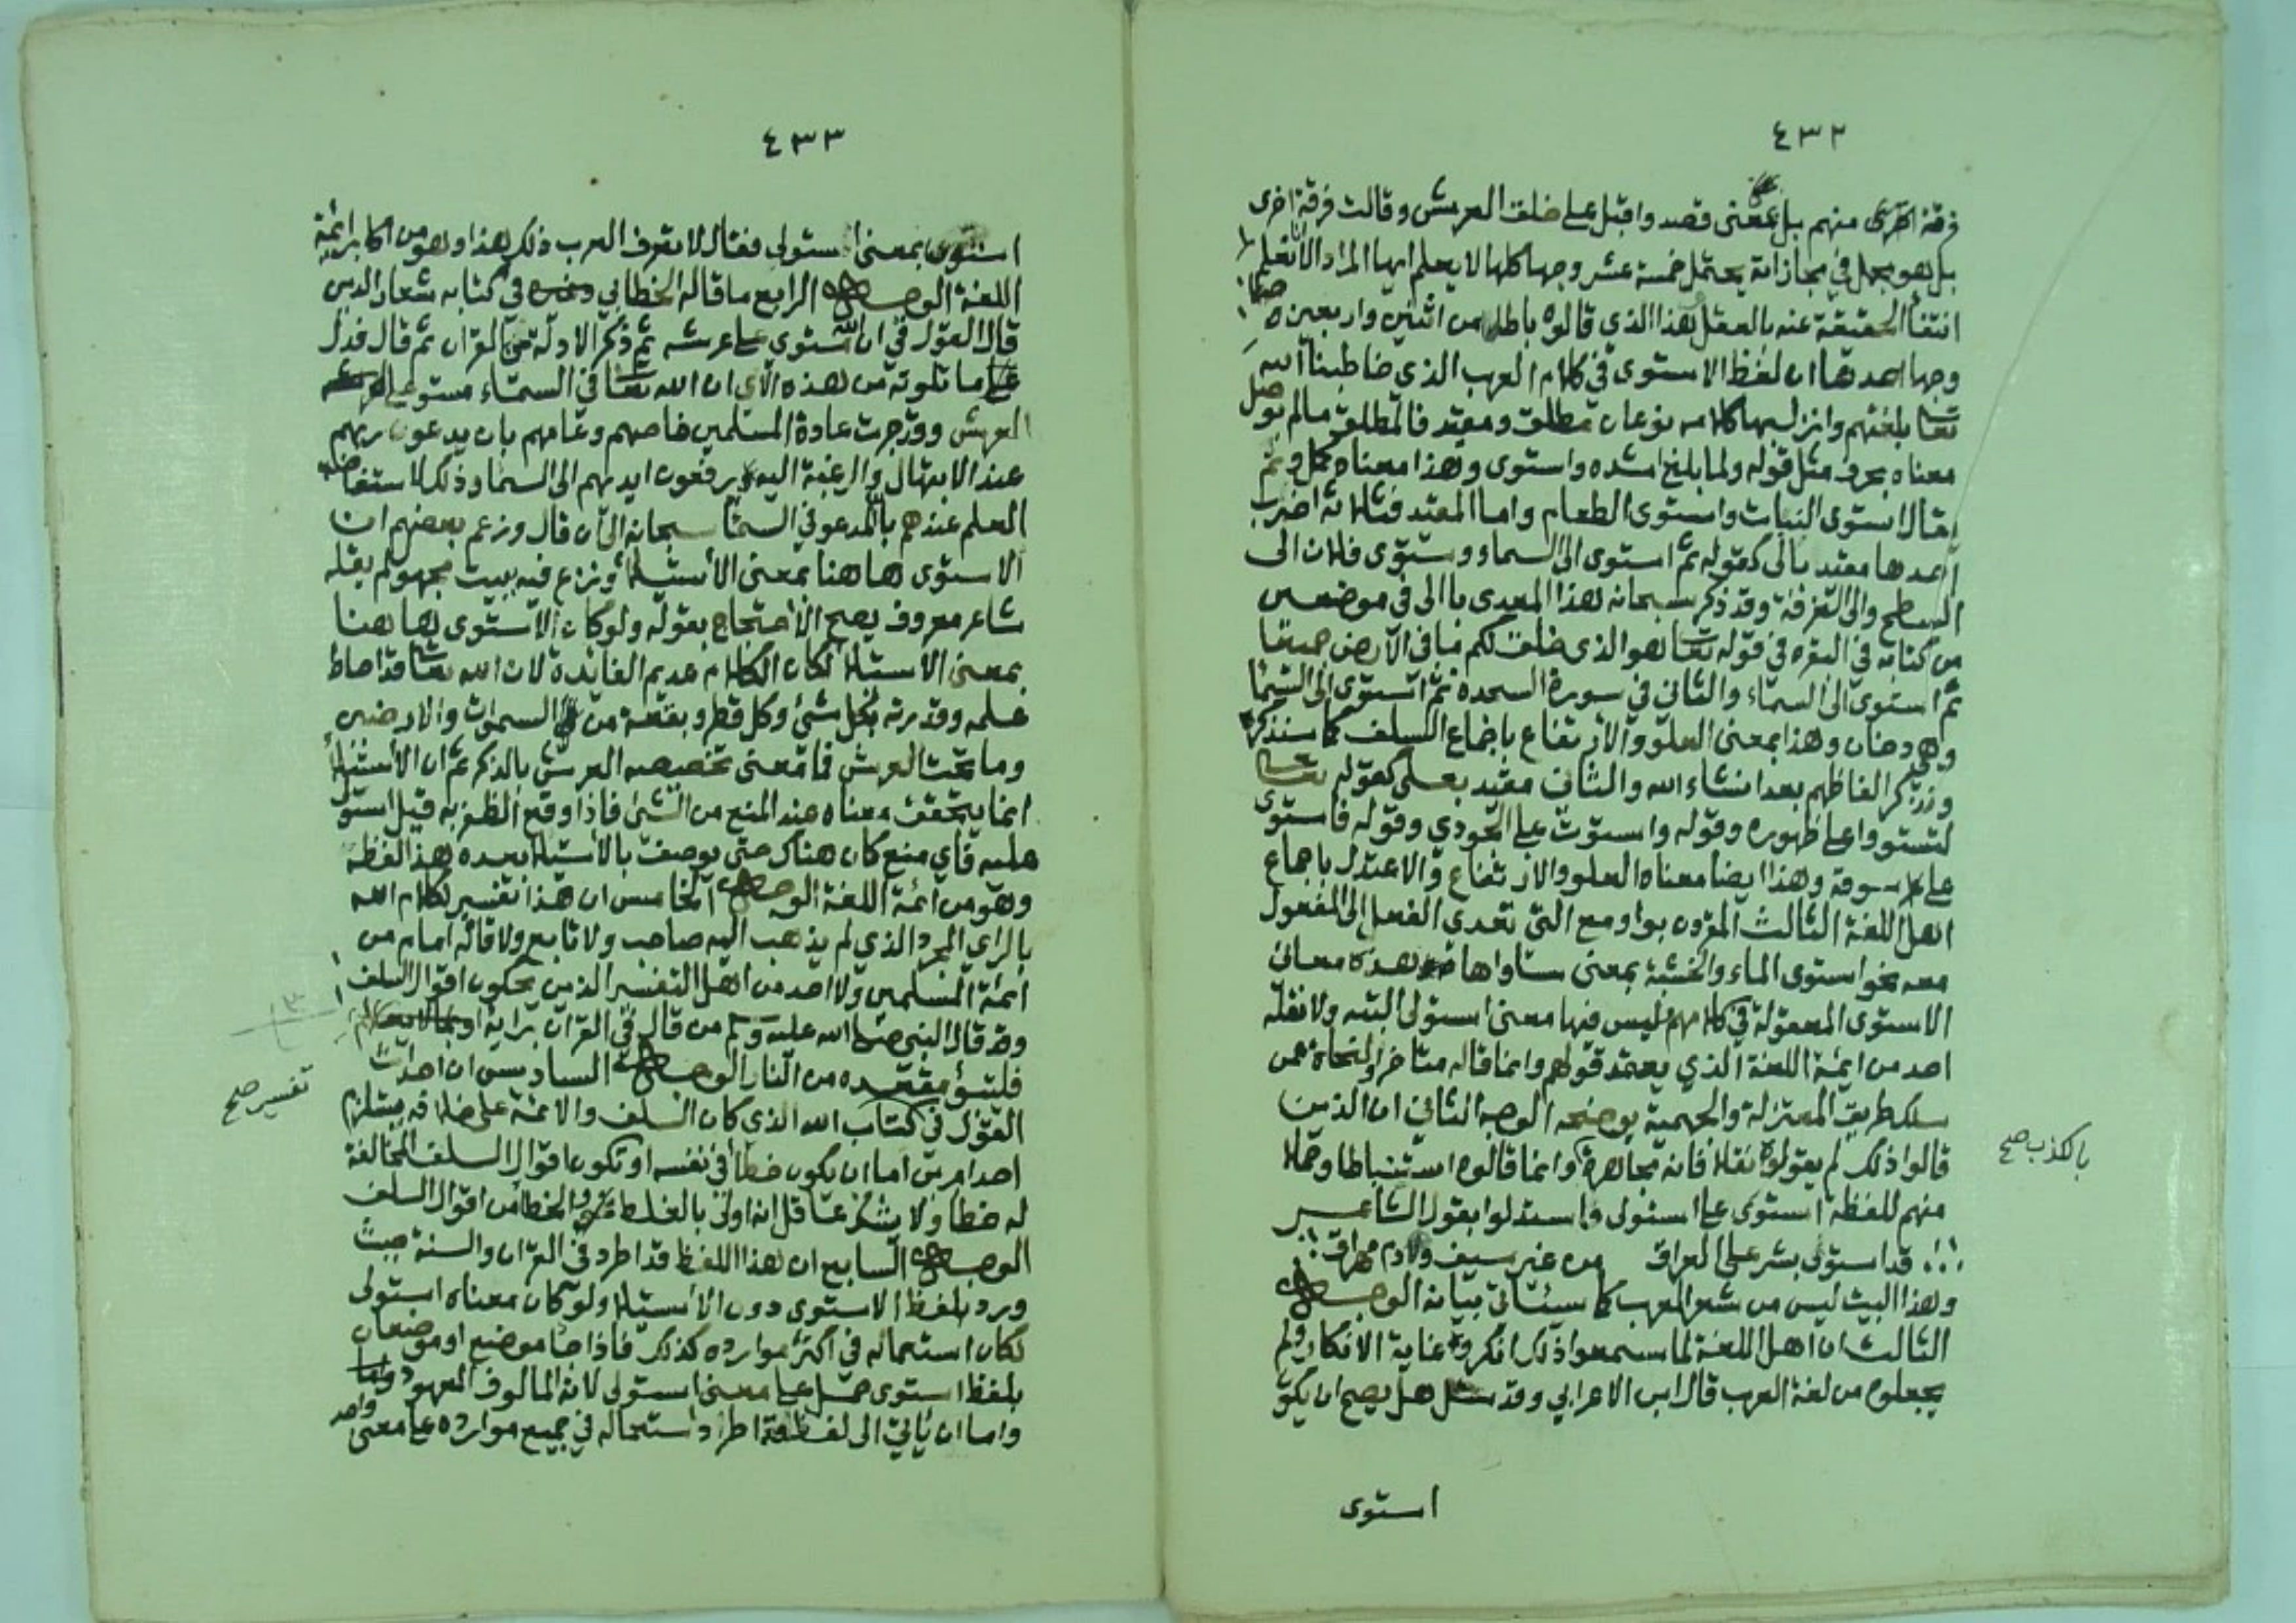 ٤٣٢
فرقة اخرى منهم بل بمعنى قصد واقبل على خلق العرش وقالت فرقة اخرى
بل هو مجمل في مجازاته يحتمل خمسة عشر وجها كلها لا يعلم ايها المراد الا انا نعلم
انتفا الحقيقة عنه بالعقل هذا الذي قالوه باطل من اثنين واربعين
وجها احدها ان لفظ الاستوى في كلام العرب الذي خاطبنا الله
تعا بلغتهم وانزل بها كلامه نوعان مطلق ومقيد فالمطلق ما لم يوصل
معناه بحرف مثل قوله ولما بلغ اشده واستوى وهذا معناه كمل وتم
يقال استوى النبات واستوى الطعام واما المقيد فثلاثة اضرب
احدها مقيد بالى كقوله ثم استوى الى السماء وستوى فلان الى
السطح والى الغرفة وقد ذكر سبحانه هذا المعدى باالى في موضعين
من كتابه في البقره في قوله تعا هو الذي خلق لكم ما في الارض جميعا
ثم استوى الى السماء والثاني في سورة السجدة ثم استوى الى السما
وهي دخان وهذا بمعنى العلو والارتفاع باجماع السلف كما سنذكره
ونذكر الفاظهم بعد انشاء الله والثاني مقيد بعلى كقوله تعا
لتستووا على ظهوره وقوله واستوت على الجودي وقوله فاستوى
على سوقه وهذا ايضا معناه العلو والارتفاع والاعتدل باجماع
اهل اللغة الثالث المقرون بواو مع التي تعدي الفعل الى المفعول
معه نحو استوى الماء والخشبة بمعنى ساواها هذه معاني
الاستوى المعقولة في كلامهم ليس فيها معنى استولى البته ولا نقله
احد من ايمة اللغة الذي يعتمد قولهم وانما قاله متاخروا النحاة ممن
سلك طريق المعتزلة والجهمية يوضحه الوجه الثاني ان الذين
قالوا ذلك لم يقولوه نقلا فانه مجاهرة وانما قالوه استنباطا وحملا
بالكذب صح
منهم للفظة استوى على استولى واستدلوا بقول الشاعر
قد استوى بشر على العراق من غير سيف ولا دم مهراق
وهذا البيت ليس من شعر العرب كما سيئاتي بيانه الوجه
الثالث ان اهل اللغة لما سمعوا ذلك انكروه غاية الانكار ولم
يجعلوه من لغة العرب قال ابن الاعرابي وقد سئل هل يصح ان يكو
استوى
٤٣٣
استوى بمعنى استولى فقال لا تعرف العرب ذلك هذا وهو من اكابر ائمة
اللغة الوجه الرابع ما قاله الخطابي في كتابه شعار الدين
قال القول في ان الله مستوى على عرشه ثم ذكر الادلة من القران ثم قال فدل
على ما تلوته من هذه الآي ان الله تعا في السماء مستو على
العرش وقد جرت عادة المسلمين خاصهم وعامهم بان يدعون ربهم
عند الابتهال والرغبة اليه ويرفعون ايديهم الى السما وذلك لاستفاضة
العلم عندهم بان المدعو في السما سبحانه الى ان قال وزعم بعضهم ان
الاستوى هاهنا بمعنى الاستيلا ونزع فيه ببيت مجهول لم يقله
شاعر معروف يصح الاحتجاج بقوله ولو كان الاستوى هاهنا
بمعنى الاستيلا لكان الكلام عديم الفائدة لان الله تعا قد احاط
علمه وقدرته بكل شئ وكل قطر وبقعة من السموات والارضين
وما تحت العرش فما معنى تخصيصه العرش بالذكر ثم ان الاستيلا
انما يتحقق معناه عند المنع من الشئ فاذا وقع الظفر به قيل استولى
عليه فاي منع كان هناك حتى يوصف بالاستيلا بعده هذا لفظه
وهو من ائمة اللغة الوجه الخامس ان هذا تفسير لكلام الله
بالراى المجرد الذي لم يذهب اليه صاحب ولا تابع ولا قاله امام من
ائمة المسلمين ولا احد من اهل التفسير الذين يحكون اقوال السلف
وقد قال النبي صلى الله عليه وسلم من قال في القران برايه
فليتبوأ مقعده من النار الوجه السادس ان احداث
تفسير صح
القول في كتاب الله الذي كان السلف والائمة على خلافه يستلزم
احد امرين اما ان يكون خطأ في نفسه او تكون اقوال السلف المخالفة
له خطأ ولا يشك عاقل انه اولى بالغلط والخطا من اقوال السلف
الوجه السابع ان هذا اللفظ قد اطرد في القران والسنة حيث
ورد بلفظ الاستوى دون الاستيلا ولو كان معناه استولى
لكان استعماله في اكثر موارده كذلك فاذا جا موضع او موضعان
بلفظ استوى حمل على معنى استولى لانه المالوف المعهود
واما ان ياتي الى لفظ قد اطرد استعماله في جميع موارده على معنى واحد